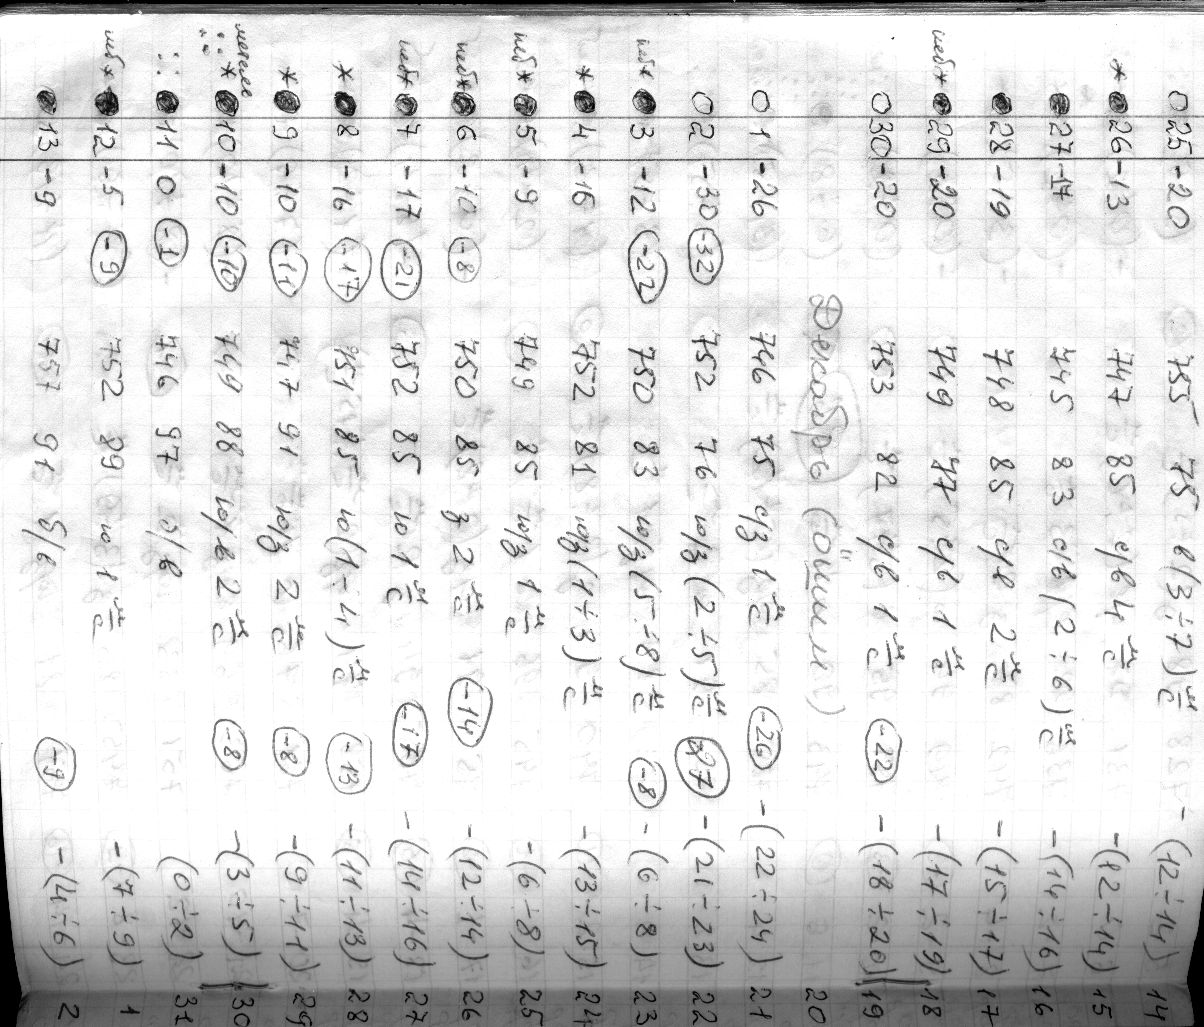 25 -20 755 75 в (3÷7) м/с -(12÷14) 14
* 26 -13 747 85 с/в 4 м/с -(12÷14) 15
27 -14 745 83 св (2÷6) м/с -(14÷16) 16
28 -19 748 85 с/в 2 м/с -(15÷17) 17
неб * 29 -20 749 77 с/в 1 м/с -(17÷19) 18
30 -20 753 82 с/в 1 м/с -22 -(18÷20) 19
Декабрь 20
1 -26 746 75 с/з 1 м/с -26 -(22÷24) 21
2 -30 -32 752 76 ю/з (2÷5) м/с -27 -(21÷23) 22
неб * 3 -12 -22 750 83 ю/з (5÷8) м/с -8 -(6÷8) 23
* 4 -16 752 81 ю/з (1÷3) м/с -(13÷15) 24
неб * 5 -9 749 85 ю/з 1 м/с -(6÷8) 25
неб * 6 -10 -8 750 85 з 2 м/с -14 -(12÷14) 26
неб * 7 -17 -21 752 85 ю 1 м/с -17 -(14÷16) 27
* 8 -16 -17 751 85 ю (1÷4) м/с -13 -(11÷13) 28
* 9 -10 -11 747 91 ю/з 2 м/с -8 -(9÷11) 29
* 10 -10 -10 749 88 ю/в 2 м/с -8 -(3÷5) 30
11 0 -1 746 97 б/в (0÷2) 31
неб * 12 -5 -9 752 89 ю 1 м/с -(7÷9) 1
13 -9 757 91 б/в -9 -(4÷6) 2